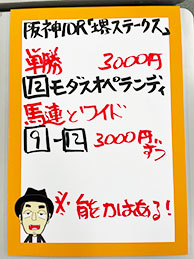 阪神10R「堺ステークス」
単勝 3000円
12 モダスオペランディ
馬連とワイド
9-12 3000円ずつ
※能力はある!